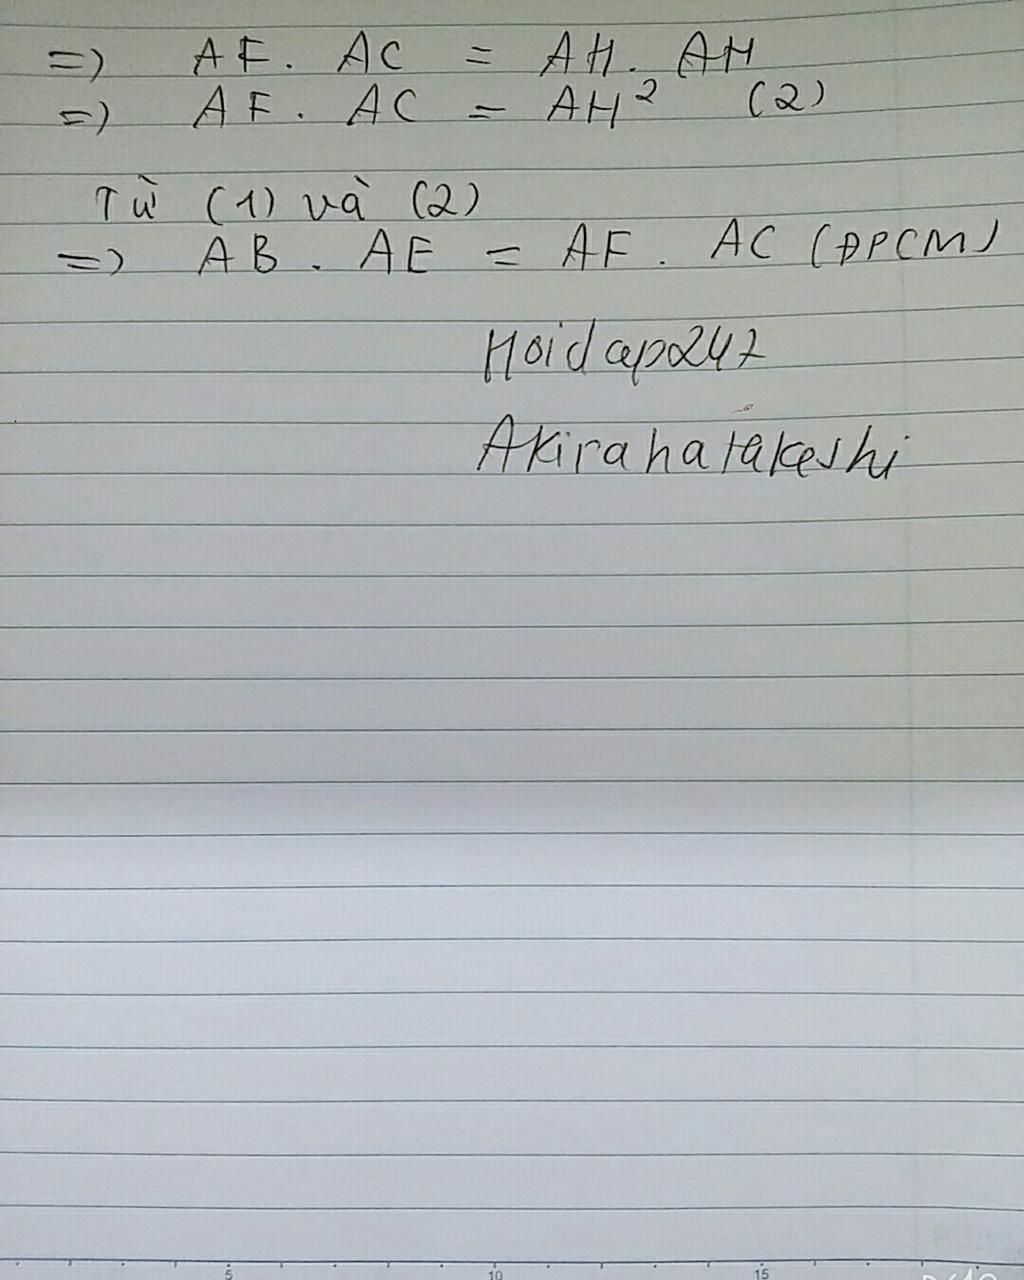 => AF. AC = AH. AH
=> AF. AC = AH² (2)
Từ (1) và (2)
=> AB. AE = AF. AC (ĐPCM)
Hoidap247
Akirahatakeshi
5 10 15